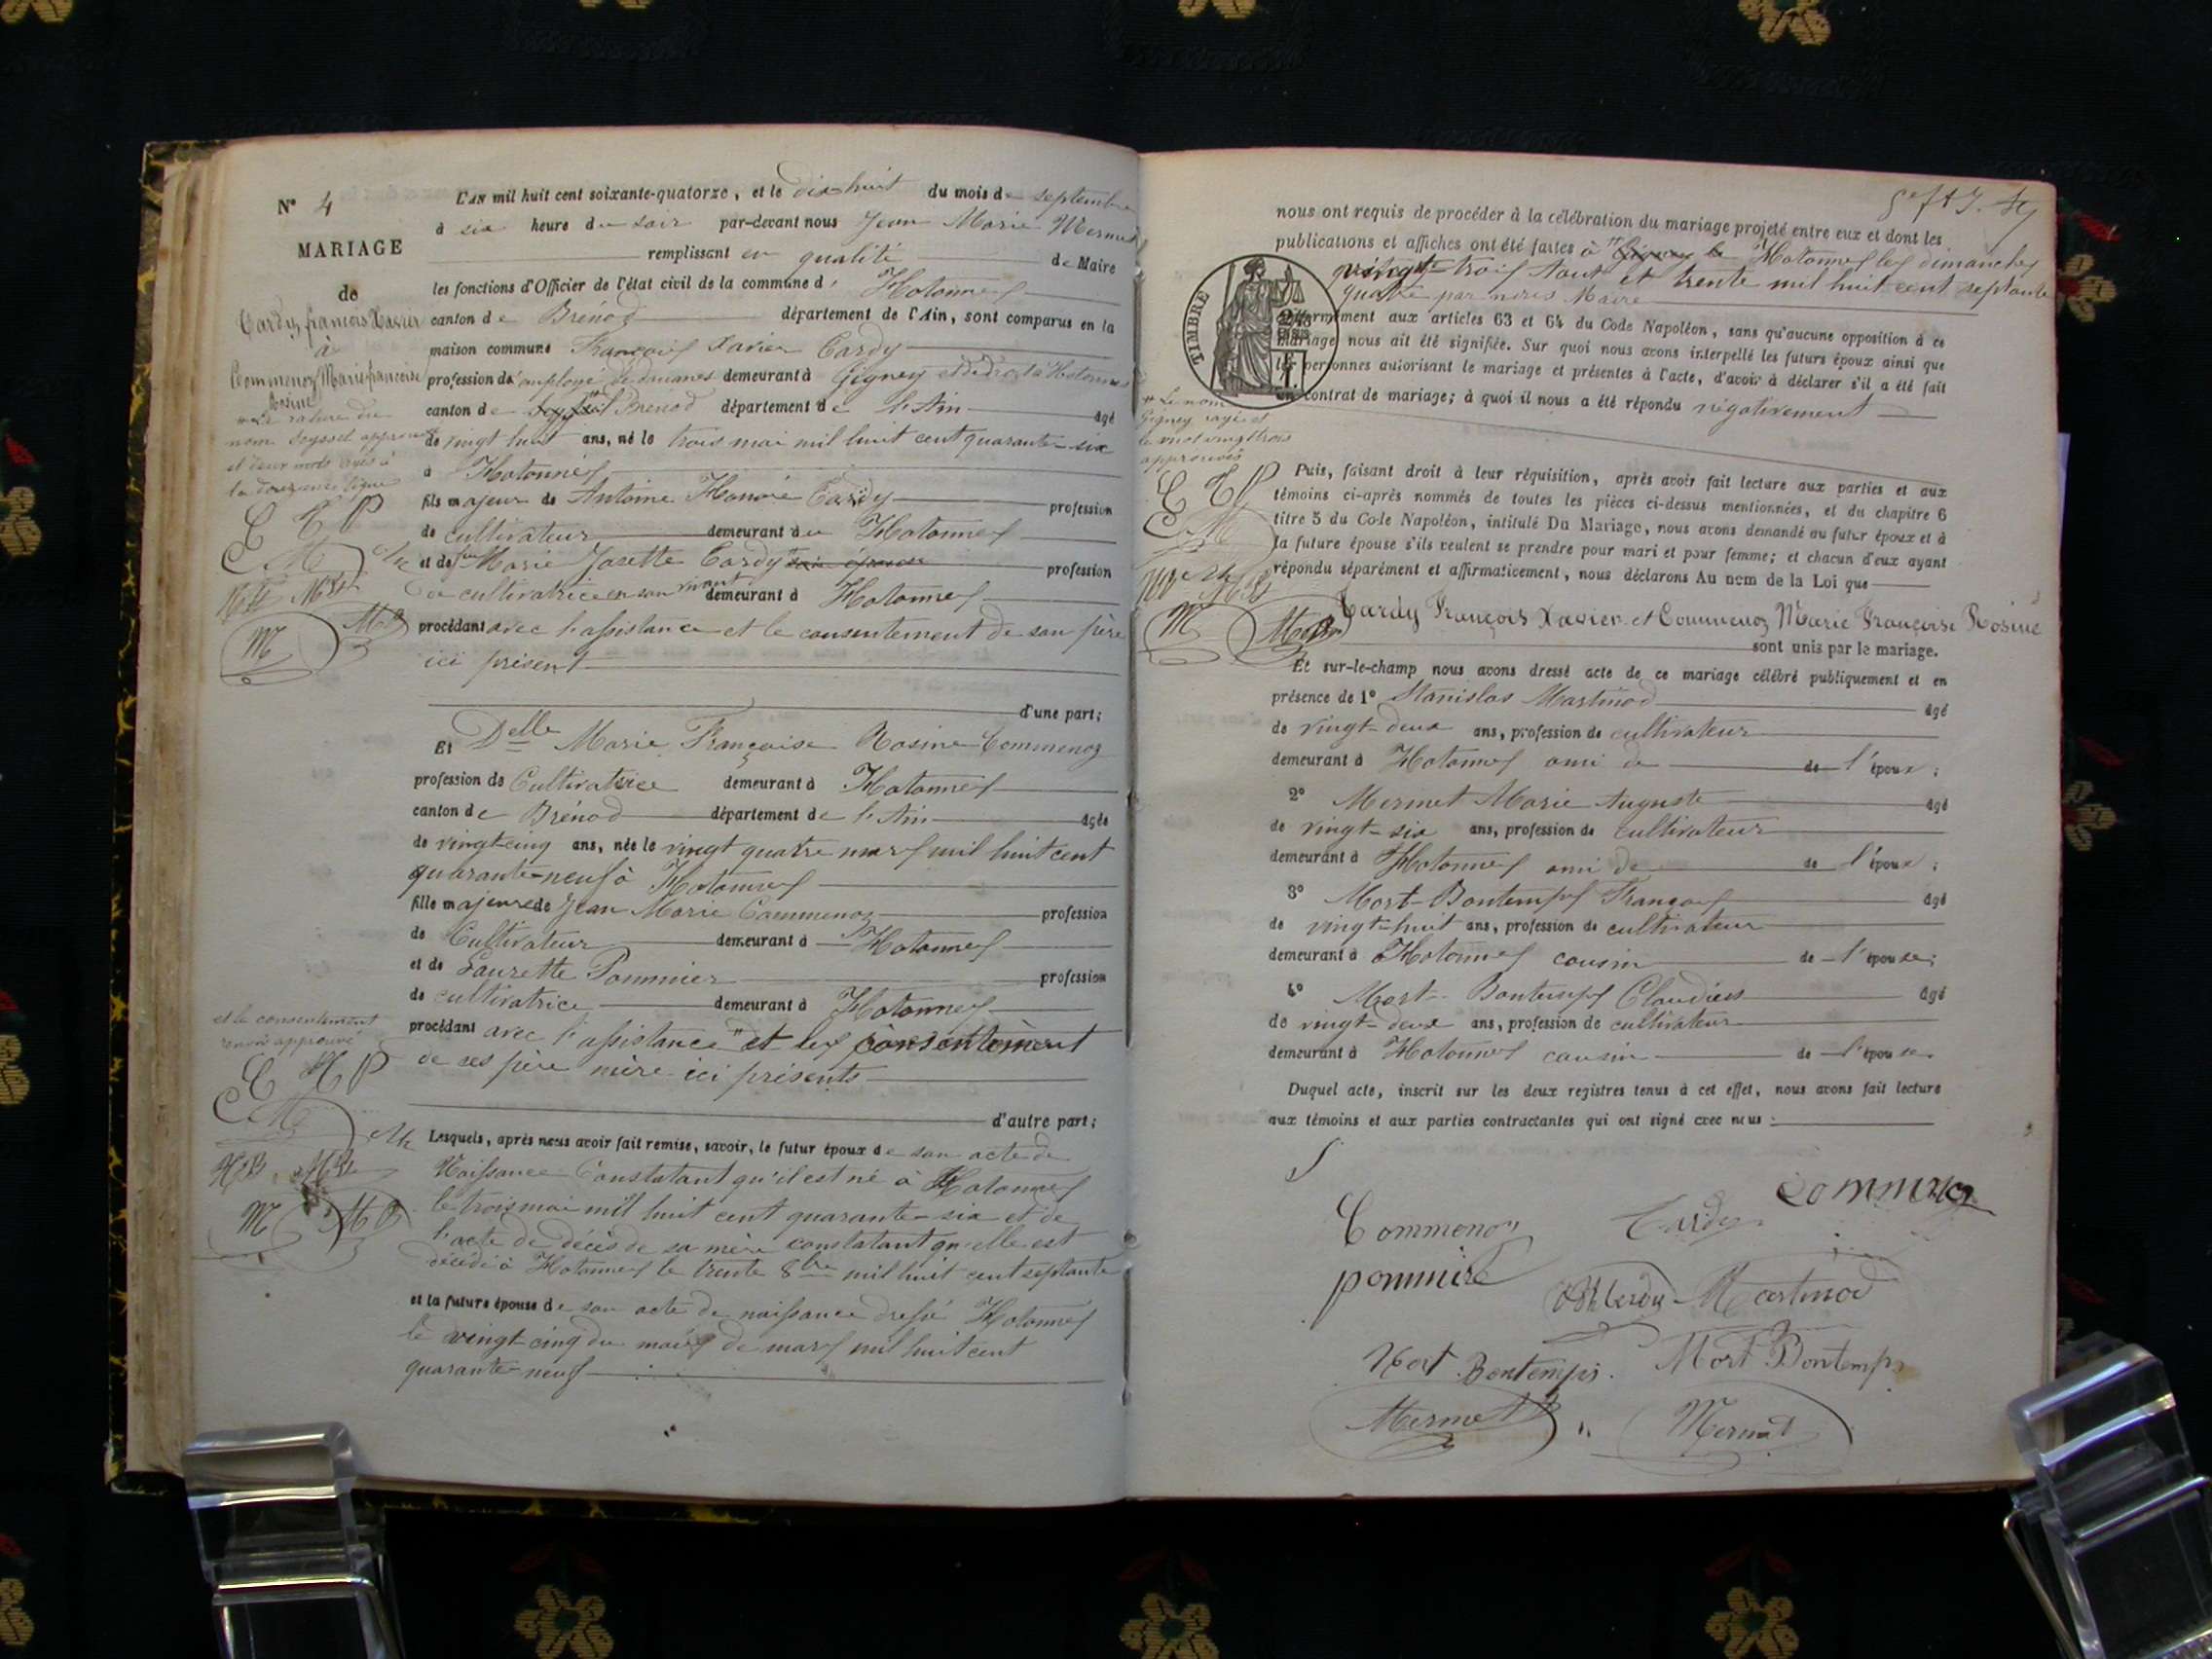 N° 4
MARIAGE
de
Cardy françois Xavier
à
Commenoz Marie françoise
Rosine
L'AN mil huit cent soixante-quatorze, et le dix-huit du mois de septembre
à six heure du soir par-devant nous Jean Marie Mermet
remplissant en qualité de Maire
les fonctions d'Officier de l'état civil de la commune d' Hotonnes
canton de Brénod département de l'Ain, sont comparus en la
maison commune François Xavier Cardy
profession d'employé de douanes demeurant à Gigney et de droit à Hotonnes
canton de Seyssel Brenod département de l'Ain âgé
de vingt huit ans, né le trois mai mil huit cent quarante-six
à Hotonnes
fils majeur de Antoine Honoré Cardy profession
de cultivateur demeurant à Hotonnes
et de feu Marie Josette Cardy son épouse profession
de cultivatrice en son vivant demeurant à Hotonnes
procédant avec l'assistance et le consentement de son père
ici présent
d'une part;
la rature du
nom Seyssel approuvé
et deux mots rayés à
la ligne
C C P
M
M
Et Delle Marie Françoise Rosine Commenoz
profession de Cultivatrice demeurant à Hotonnes
canton de Brénod département de l'Ain âgée
de vingt-cinq ans, née le vingt quatre mars mil huit cent
quarante-neuf à Hotonnes
fille majeure de Jean Marie Commenoz profession
de Cultivateur demeurant à Hotonnes
et de Laurette Pommier profession
de cultivatrice demeurant à Hotonnes
procédant avec l'assistance " et les consentement
de ses père mère ici présents
d'autre part;
et le consentement
renvoi approuvé
Lesquels, après nous avoir fait remise, savoir, le futur époux de son acte de
Naissance Constatant qu'il est né à Hotonnes
le trois mai mil huit cent quarante-six et de
l'acte de décès de sa mère constatant qu'elle est
décédé à Hotonnes le trente 8bre mil huit cent septante
et la future épouse de son acte de naissance dressé Hotonnes
le vingt-cinq du mois de mars mil huit cent
quarante-neuf
nous ont requis de procéder à la célébration du mariage projeté entre eux et dont les
publications et affiches ont été faites à " Gigney le Hotonnes les dimanches
vingt-trois aout et trente mil huit cent septante
quatre par nous Maire
TIMBRE
conformément aux articles 63 et 64 du Code Napoléon, sans qu'aucune opposition à ce
mariage nous ait été signifiée. Sur quoi nous avons interpellé les futurs époux ainsi que
les personnes autorisant le mariage et présentes à l'acte, d'avoir à déclarer s'il a été fait
un contrat de mariage; à quoi il nous a été répondu négativement
Le nom
Gigney rayé et
le mot vingt trois
approuvés
Puis, faisant droit à leur réquisition, après avoir fait lecture aux parties et aux
témoins ci-après nommés de toutes les pièces ci-dessus mentionnées, et du chapitre 6
titre 5 du Code Napoléon, intitulé Du Mariage, nous avons demandé au futur époux et à
la future épouse s'ils veulent se prendre pour mari et pour femme; et chacun d'eux ayant
répondu séparément et affirmativement, nous déclarons Au nom de la Loi que
Cardy François Xavier et Commenoz Marie Françoise Rosine
sont unis par le mariage.
Et sur-le-champ nous avons dressé acte de ce mariage célébré publiquement et en
présence de 1° Stanislas Martinod âgé
de vingt-deux ans, profession de cultivateur
demeurant à Hotonnes ami de de l'époux;
2° Mermet Marie Auguste âgé
de vingt-six ans, profession de cultivateur
demeurant à Hotonnes ami de de l'époux;
3° Mort-Bontemps François âgé
de vingt-huit ans, profession de cultivateur
demeurant à Hotonnes cousin de l'épouse;
4° Mort-Bontemps Claudius âgé
de vingt-deux ans, profession de cultivateur
demeurant à Hotonnes cousin de l'épouse.
Duquel acte, inscrit sur les deux registres tenus à cet effet, nous avons fait lecture
aux témoins et aux parties contractantes qui ont signé avec nous:
Commenoz
Commenoz Cardy
pommier
Martinod
Mort Bontemps. Mort Bontemps
Mermet Mermet